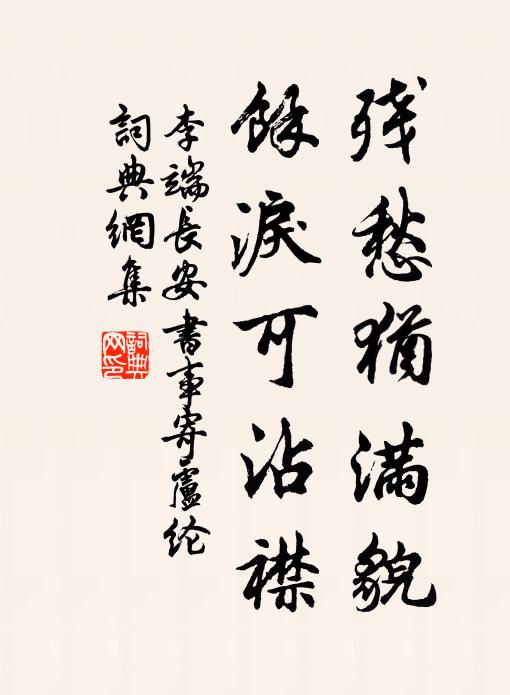 残愁猶滿貌
餘淚可沾襟
李端長安書事寄盧纶
詞典網集
詞典网印